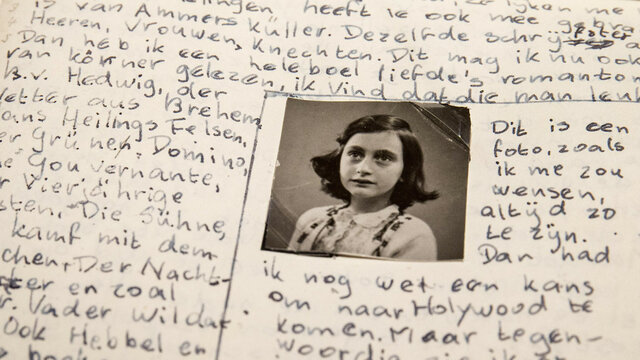 lingen, heeft ie ook mee gebra
is van Ammers Küller. Dezelfde schrijfster
Heeren, Vrouwen, Knechten. Dit mag ik nu ook
Dan heb ik een heleboel liefde's
van körner gelezen, ik vind dat die man leuk
B.v. Hedwig, der
Vetter aus Brehem,
ans Heilings Felsen,
er Grüner Domino,
e Gouvernante,
r Vierjährige
sten, Die Sühne,
kamf mit dem
chen, Der Nacht-
ter en zoal
r. Vader wil dat
Ook Hebbel en
Dit is een
foto, zoals
ik me zou
wensen,
altijd zo
te zijn.
Dan had
ik nog wel een kans
om naar Holywood te
komen. Maar tegen-
woordig